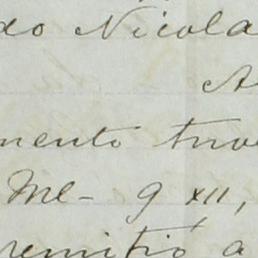 do Nicola
A
mento tuvo
Me- 9 XII,
remitió a